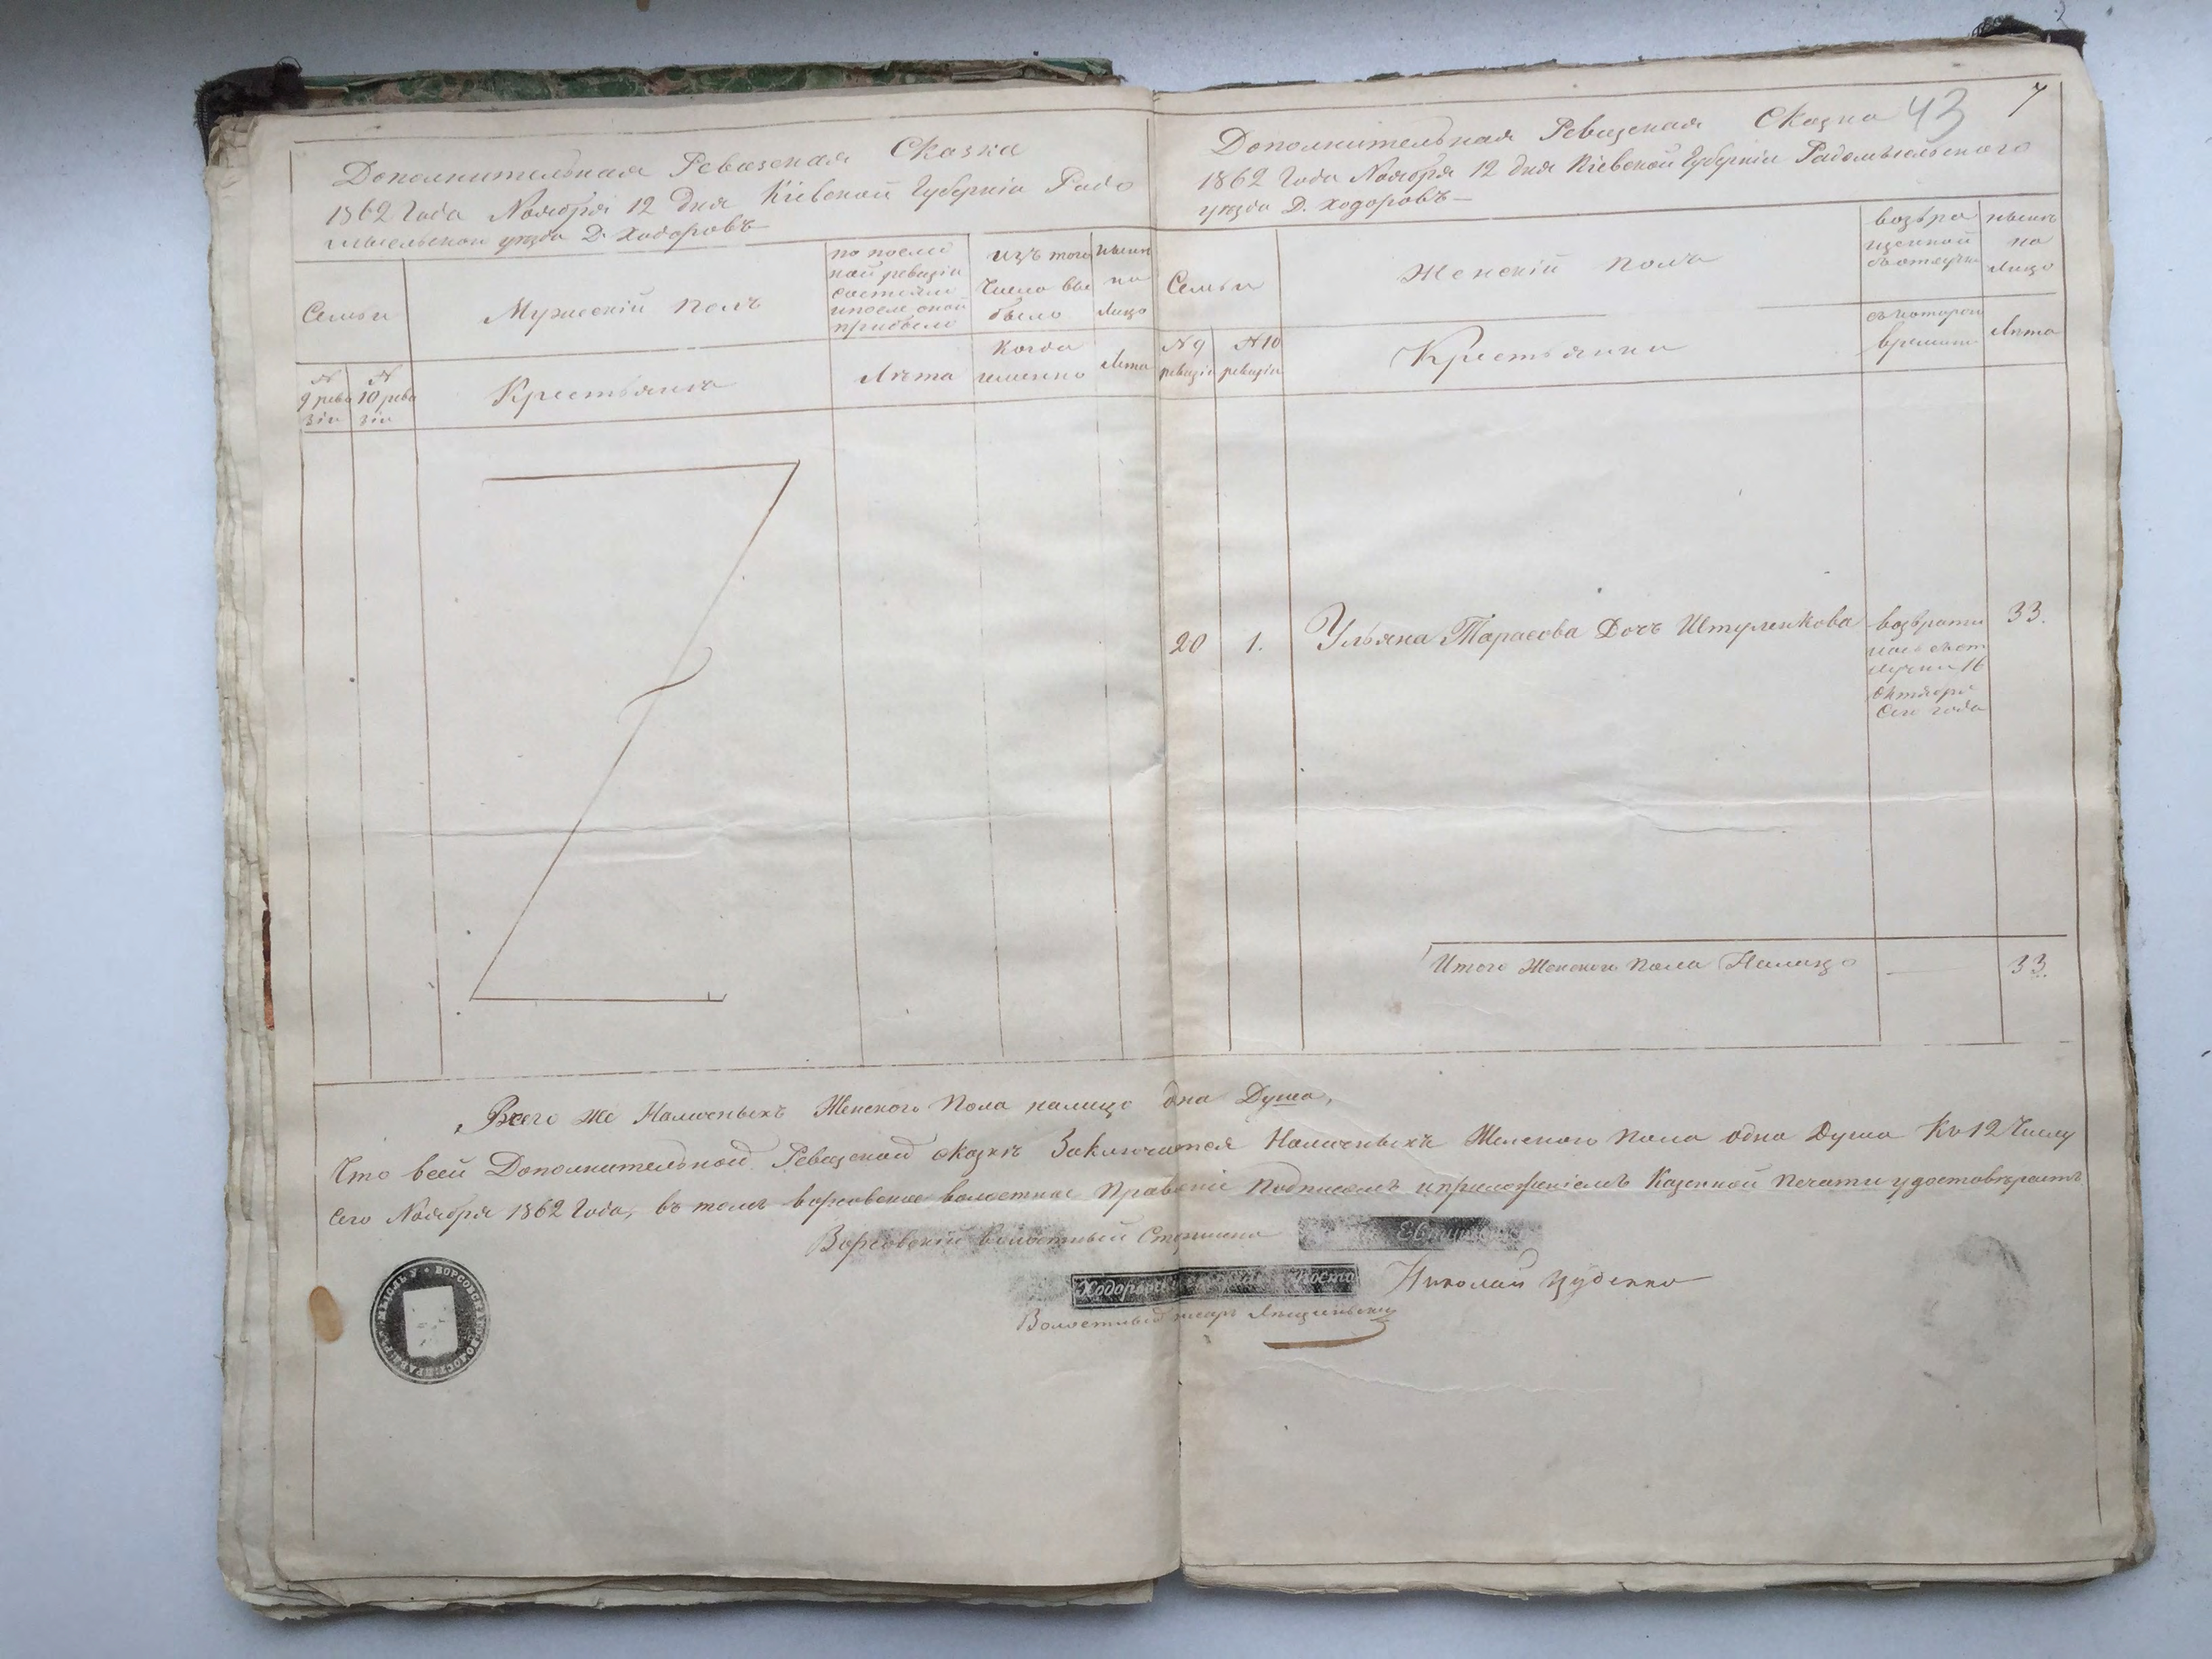 Дополнительная Ревизская Сказка
1862 Года Ноября 12 дня Кіевской Губерніи Радо
мысльскаго уѣзда Д. Ходоровъ
Семьи
Мужескій полъ
по послѣд
ней ревизіи
состояло
и послѣ оной
прибыло
изъ того
числа вы
было
нынѣ
на
лицо
№
9 реви
зіи
№
10 реви
зіи
Крестьяне
Лѣта
Когда
именно
Лѣта
43
7
Дополнительная Ревизская Сказка
1862 Года Ноября 12 дня Кіевской Губерніи Радомысльского
уѣзда Д. Ходоровъ
Семьи
Женскій полъ
нынѣ
на
лицо
№ 9
ревизіи
№ 10
ревизіи
Крестьянки
съ котораго
времени
Лѣта
20 1. Ульяна Тарасова Дочь 33.
возврати
лась съ от
лучки 16
Октября
сего года
Итого Женского пола Налицо 33.
Всего же Наличныхъ Женского Пола налицо одна Душа,
Что в сей Дополнительной Ревизской сказкѣ Заключается Наличныхъ Женского пола одна Душа Къ 12 Числу
сего Ноября 1862 Года, въ томъ Ворсовское волостное Правленіе подписомъ и приложеніемъ Казенной Печати удостовѣряетъ
Ворсовскій Волостный Старшина
Ходоровскій старо
Николай
Волостный писарь
ВОРСОВСК ВОЛОСТ: ПРАВ